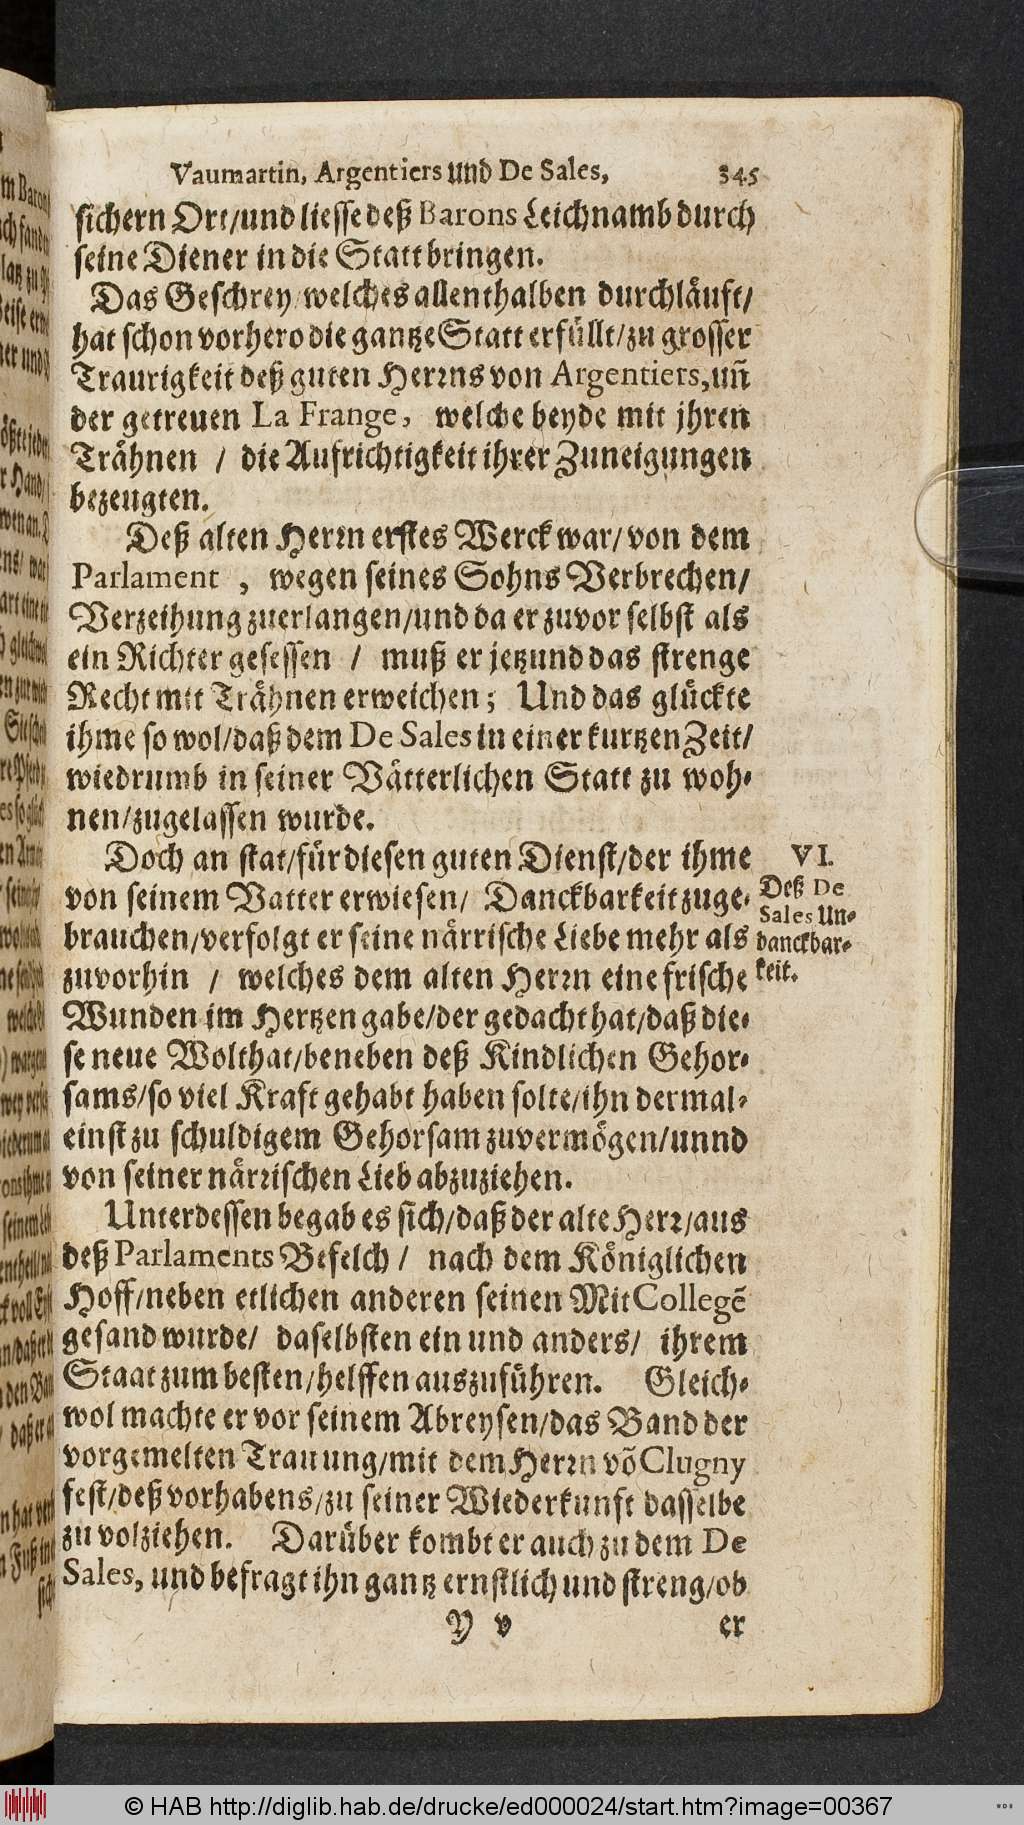 Vaumartin, Argentiers und De Sales, 345
sichern Ort/und liesse deß Barons Leichnamb durch
seine Diener in die Statt bringen.
Das Geschrey/welches allenthalben durchläuft/
hat schon vorhero die gantze Statt erfüllt/zu grosser
Traurigkeit deß guten Herrns von Argentiers,uñ
der getreuen La Frange, welche beyde mit jhren
Trähnen / die Aufrichtigkeit ihrer Zuneigungen
bezeugten.
Deß alten Herrn erstes Werck war/von dem
Parlament , wegen seines Sohns Verbrechen/
Verzeihung zuerlangen/und da er zuvor selbst als
ein Richter gesessen / muß er jetzund das strenge
Recht mit Trähnen erweichen; Und das glückte
ihme so wol/daß dem De Sales in einer kurtzen Zeit/
wiedrumb in seiner Vätterlichen Statt zu woh-
nen/zugelassen wurde.
Doch an stat/für diesen guten Dienst/der ihme
von seinem Vatter erwiesen/ Danckbarkeit zuge-
brauchen/verfolgt er seine närrische Liebe mehr als
zuvorhin / welches dem alten Herrn eine frische
Wunden im Hertzen gabe/der gedacht hat/daß die-
se neue Wolthat/beneben deß Kindlichen Gehor-
sams/so viel Kraft gehabt haben solte/ihn dermal-
einst zu schuldigem Gehorsam zuvermögen/unnd
von seiner närrischen Lieb abzuziehen.
VI.
Deß De
Sales Un-
danckbar-
keit.
Unterdessen begab es sich/daß der alte Herr/aus
deß Parlaments Befelch / nach dem Königlichen
Hoff/neben etlichen anderen seinen MitCollegẽ
gesand wurde/ daselbsten ein und anders/ ihrem
Staat zum besten/helffen auszuführen. Gleich-
wol machte er vor seinem Abreysen/das Band der
vorgemelten Trauung/mit dem Herrn võ Clugny
fest/deß vorhabens/zu seiner Wiederkunft dasselbe
zu volziehen. Darüber kombt er auch zu dem De
Sales, und befragt ihn gantz ernstlich und streng/ob
Y v er
© HAB http://diglib.hab.de/drucke/ed000024/start.htm?image=00367